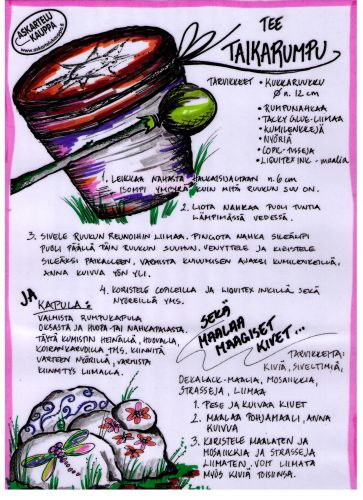 ASKARTELU
KAUPPA
TEE
TAIKARUMPU
TARVIKKEET • KUKKARUUKKU
Ø n. 12 cm
• RUMPUNAHKAA
• TACKY GLUE-LIIMAA
• KUMILENKKEJÄ
• NYÖRIÄ
• COPIC-TUSSEJA
• LIQUITEX INK-maalia
1. LEIKKAA NAHASTA HALKAISIJALTAAN n. 6 cm
ISOMPI YMPYRÄ KUIN MITÄ RUUKUN SUU ON.
2. LIOTA NAHKAA PUOLI TUNTIA
LÄMPIMÄSSÄ VEDESSÄ.
3. SIVELE RUUKUN REUNOIHIN LIIMAA. PINGOTA NAHKA SILEÄMPI
PUOLI PÄÄLLÄ TÄIN RUUKUN SUUHUN. VENYTTELE JA KIRISTELE
SILEÄKSI PAIKALLEEN. VARMISTA KUIVUMISEN AJAKSI KUMILENKEILLÄ,
ANNA KUIVUA YÖN YLI.
4. KORISTELE COPICEILLA JA LIQUITEX INKILLÄ, SEKÄ
NYÖREILLÄ YMS.
JA
KAPULA:
VALMISTA RUMPUKAPULA
OKSASTA JA HUOPA- TAI NAHKAPALASTA.
TÄYTÄ KUMISTIN HEINÄLLÄ, HUOVALLA,
KOIRANKARVOILLA TMS. KIINNITÄ
VARTEEN NYÖRILLÄ, VARMISTA
KIINNITYS LIIMALLA.
SEKÄ
MAALAA
MAAGISET
KIVET...
TARVIKKEITA:
KIVIÄ, SIVELTIMIÄ,
DEKALACK-MAALIA, MOSAIIKKIA,
STRASSEJA, LIIMAA
1. PESE JA KUIVAA KIVET
2. MAALAA POHJAMAALI, ANNA
KUIVUA
3. KORISTELE MAALATEN JA
MOSAIIKKIA JA STRASSEJA
LIIMATEN. VOIT LIIMATA
MYÖS KIVIÄ TOISIINSA.